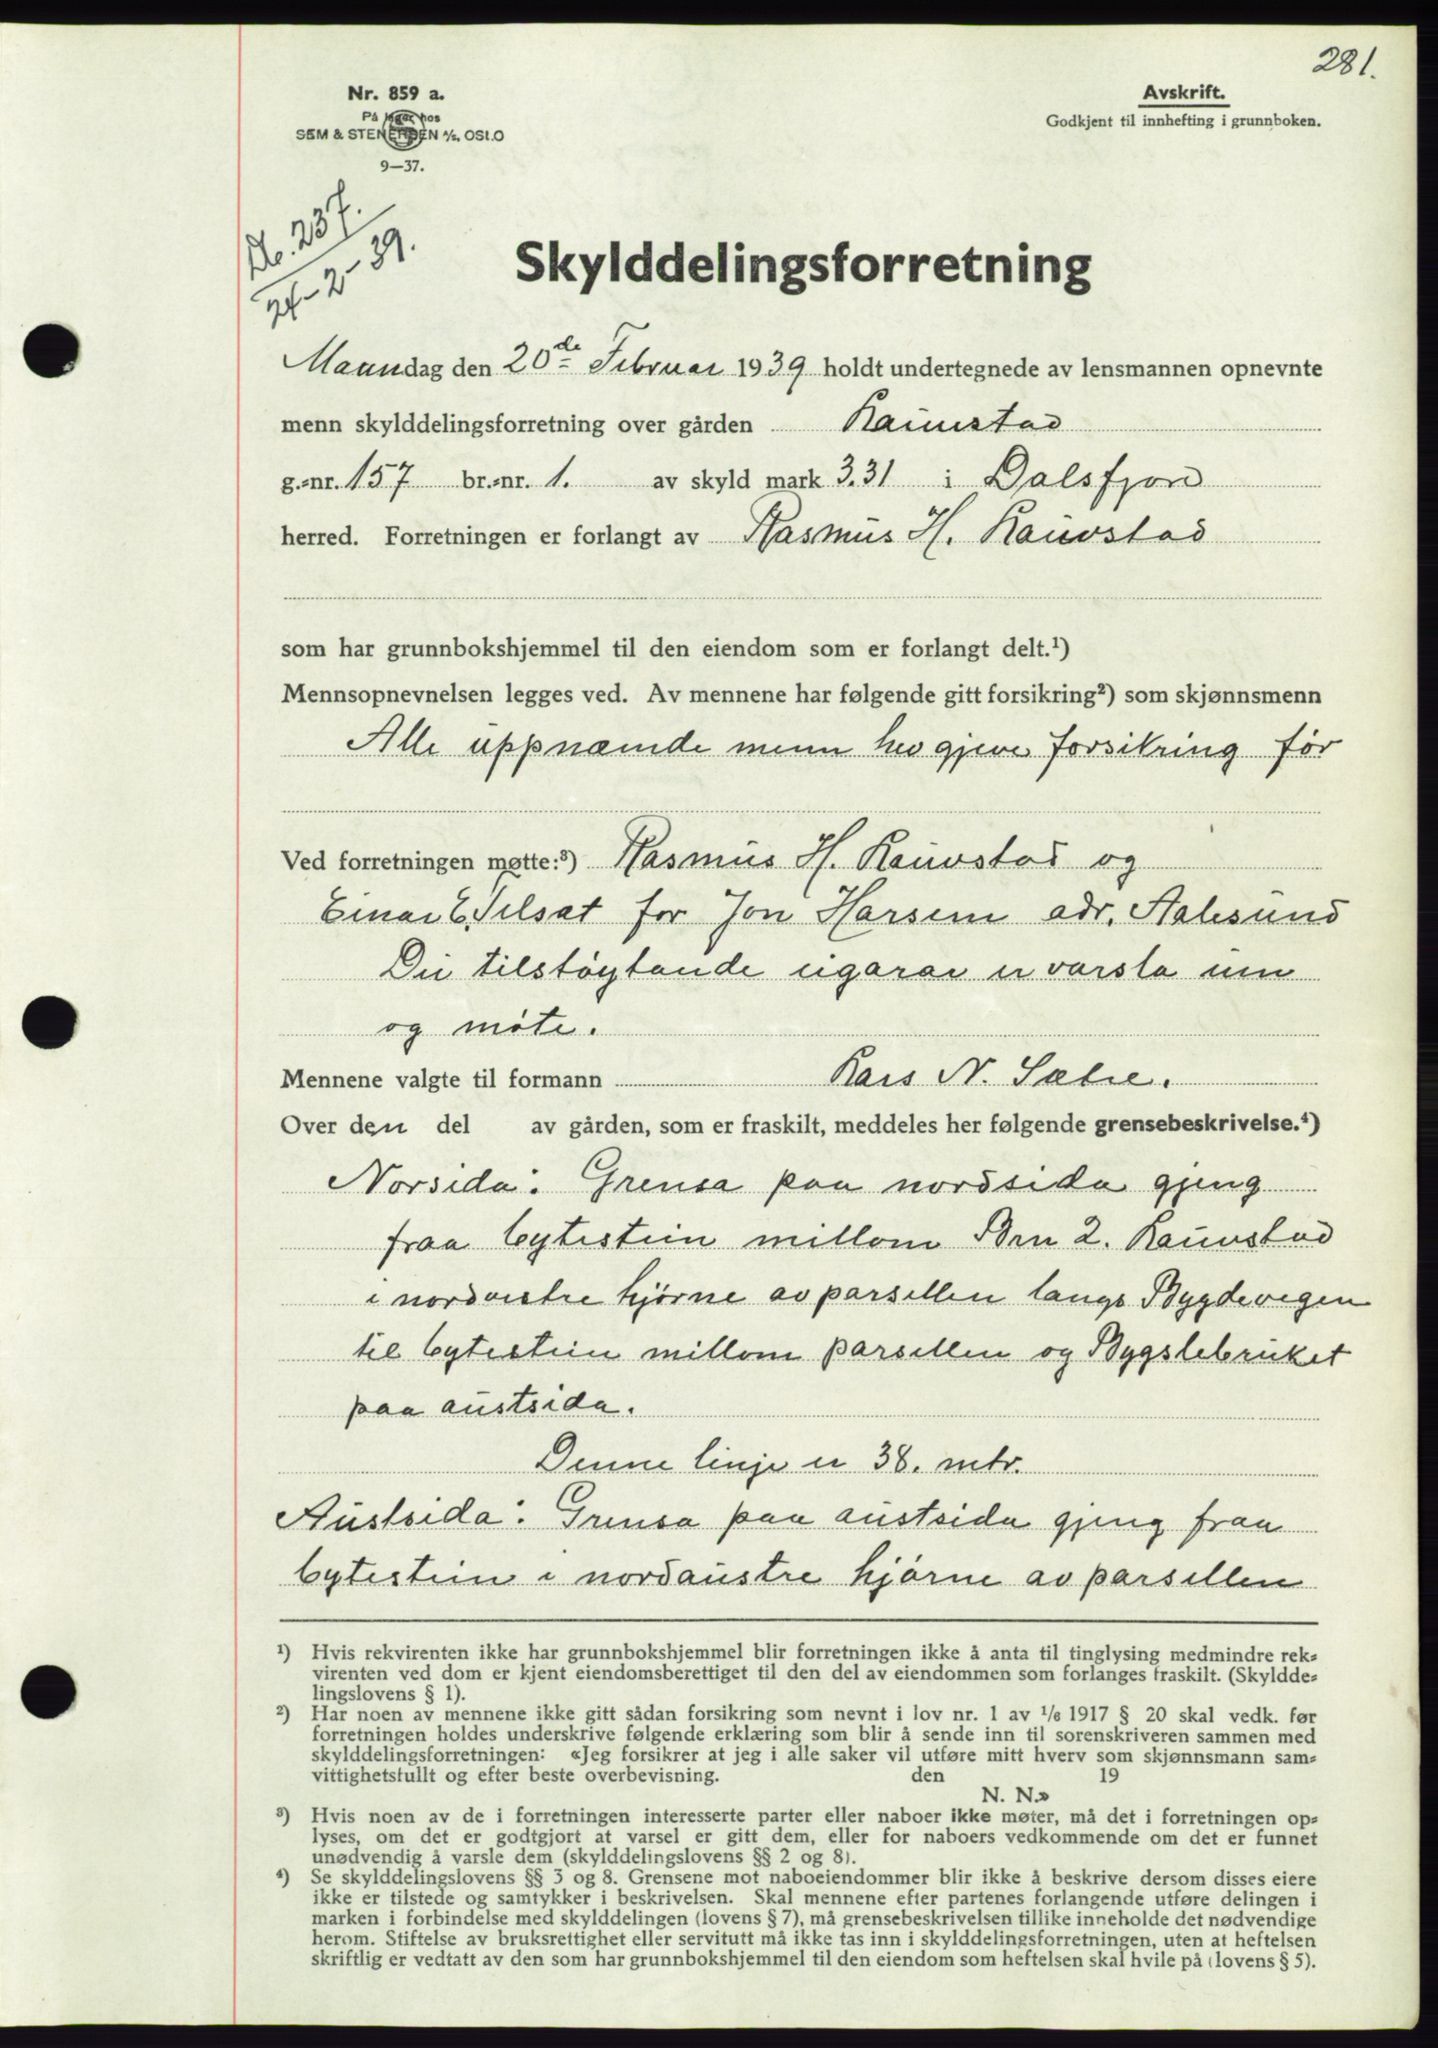 281.
Nr. 859 a.
På lager hos
SEM & STENERSEN A/S, OSLO
9—37.
Avskrift.
Godkjent til innhefting i grunnboken.
237.
24-2-39.
Skylddelingsforretning
Maandag den 20de Februar 1939 holdt undertegnede av lensmannen opnevnte
menn skylddelingsforretning over gården Lauvstad
g.=nr. 157 br.=nr. 1. av skyld mark 3.31 i Dalsfjord
herred. Forretningen er forlangt av Rasmus H. Lauvstad
som har grunnbokshjemmel til den eiendom som er forlangt delt.¹)
Mennsopnevnelsen legges ved. Av mennene har følgende gitt forsikring²) som skjønnsmenn
Alle uppnæmde menn hev gjeve forsikring før
Ved forretningen møtte:³) Rasmus H. Lauvstad og
Einar E. for Jon Harsem adr. Aalesund
Dei tilstøytande eigarar er varsla um
og møte.
Mennene valgte til formann Lars N. Sætre.
Over den del av gården, som er fraskilt, meddeles her følgende grensebeskrivelse.⁴)
Norsida: Grensa paa nordsida gjeng
fraa bytestein millom Brn 2. Lauvstad
i nordvestre hjørne av parsellen langs Bygdevegen
til bytestein millom parsellen og Bygslebruket
paa austsida.
Denne linje er 38. mtr.
Austsida: Grensa paa austsida gjeng fraa
bytestein i nordaustre hjørne av parsellen
¹) Hvis rekvirenten ikke har grunnbokshjemmel blir forretningen ikke å anta til tinglysing medmindre rek=
virenten ved dom er kjent eiendomsberettiget til den del av eiendommen som forlanges fraskilt. (Skyldde=
lingslovens § 1).
²) Har noen av mennene ikke gitt sådan forsikring som nevnt i lov nr. 1 av 1/6 1917 § 20 skal vedk. før
forretningen holdes underskrive følgende erklæring som blir å sende inn til sorenskriveren sammen med
skylddelingsforretningen: «Jeg forsikrer at jeg i alle saker vil utføre mitt hverv som skjønnsmann sam=
vittighetsfullt og efter beste overbevisning. den 19
N. N.»
³) Hvis noen av de i forretningen interesserte parter eller naboer ikke møter, må det i forretningen op=
lyses, om det er godtgjort at varsel er gitt dem, eller for naboers vedkommende om det er funnet
unødvendig å varsle dem (skylddelingslovens §§ 2 og 8).
⁴) Se skylddelingslovens §§ 3 og 8. Grensene mot naboeiendommer blir ikke å beskrive dersom disses eiere
ikke er tilstede og samtykker i beskrivelsen. Skal mennene efter partenes forlangende utføre delingen i
marken i forbindelse med skylddelingen (lovens § 7), må grensebeskrivelsen tillike inneholde det nødvendige
herom. Stiftelse av bruksrettighet eller servitutt må ikke tas inn i skylddelingsforretningen, uten at heftelsen
skriftlig er vedtatt av den som har grunnbokshjemmel til den eiendom som heftelsen skal hvile på (lovens § 5).